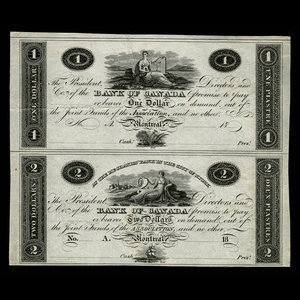 1
1
ONE DOLLAR
UN PIASTRE
The President, Directors and
Co. of the BANK OF CANADA promise to pay
or bearer One Dollar on demand, out of
the Joint Funds of the Association, and no other.
Montreal 18
1
1
Cash.r Pres.t
2
2
TWO DOLLARS
DEUX PIASTRES
The President, Directors and
Co. of the BANK OF CANADA promise to pay
or bearer Two Dollars on demand, out of
the Joint Funds of the ASSOCIATION, and no other
No. A. Montreal 18
2
2
Cash.r Pres.t